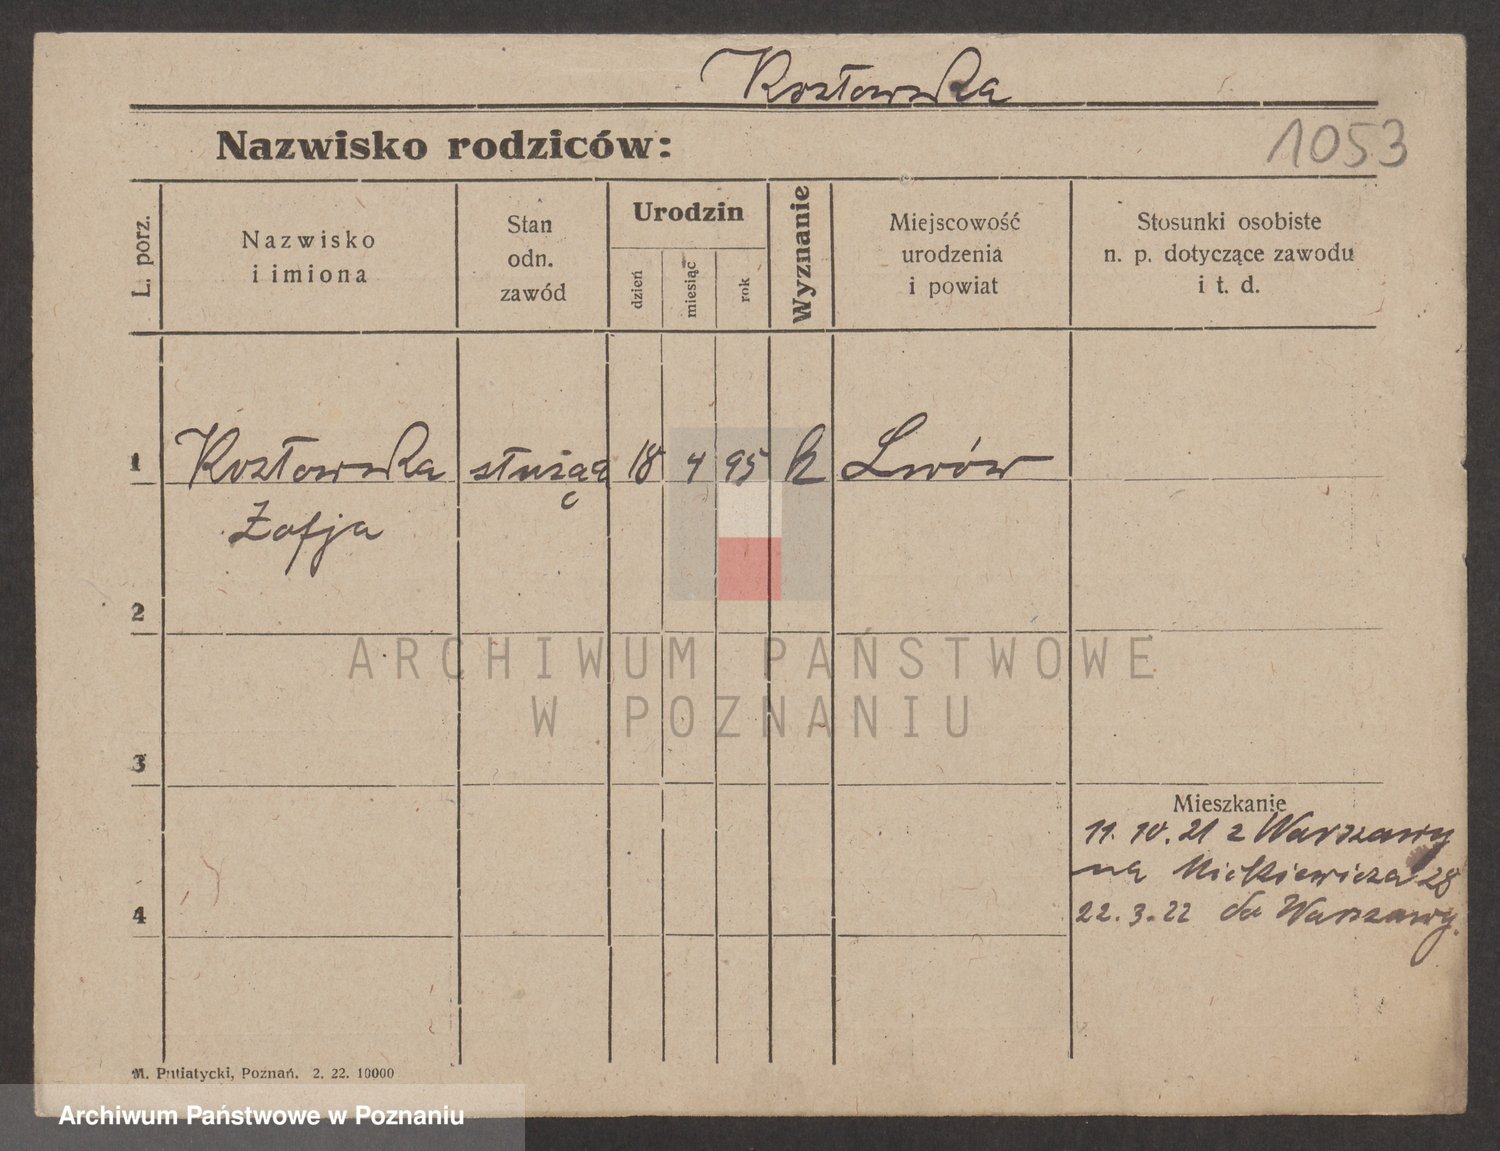 Kozłowska
Nazwisko rodziców:
1053
L. porz.
Nazwisko
i imiona
Stan
odn.
zawód
Urodzin
dzień
miesiąc
rok
Wyznanie
Miejscowość
urodzenia
i powiat
Stosunki osobiste
n. p. dotyczące zawodu
i t. d.
1 Kozłowska służąca 18 4 95 k Lwów
Zofja
2
ARCHIWUM PAŃSTWOWE
W POZNANIU
3
Mieszkanie
11. 10. 21 z Warszawy
na Mickiewicza 28
4
22. 3. 22 do Warszawy.
M. Putiatycki, Poznań. 2. 22. 10000
Archiwum Państwowe w Poznaniu